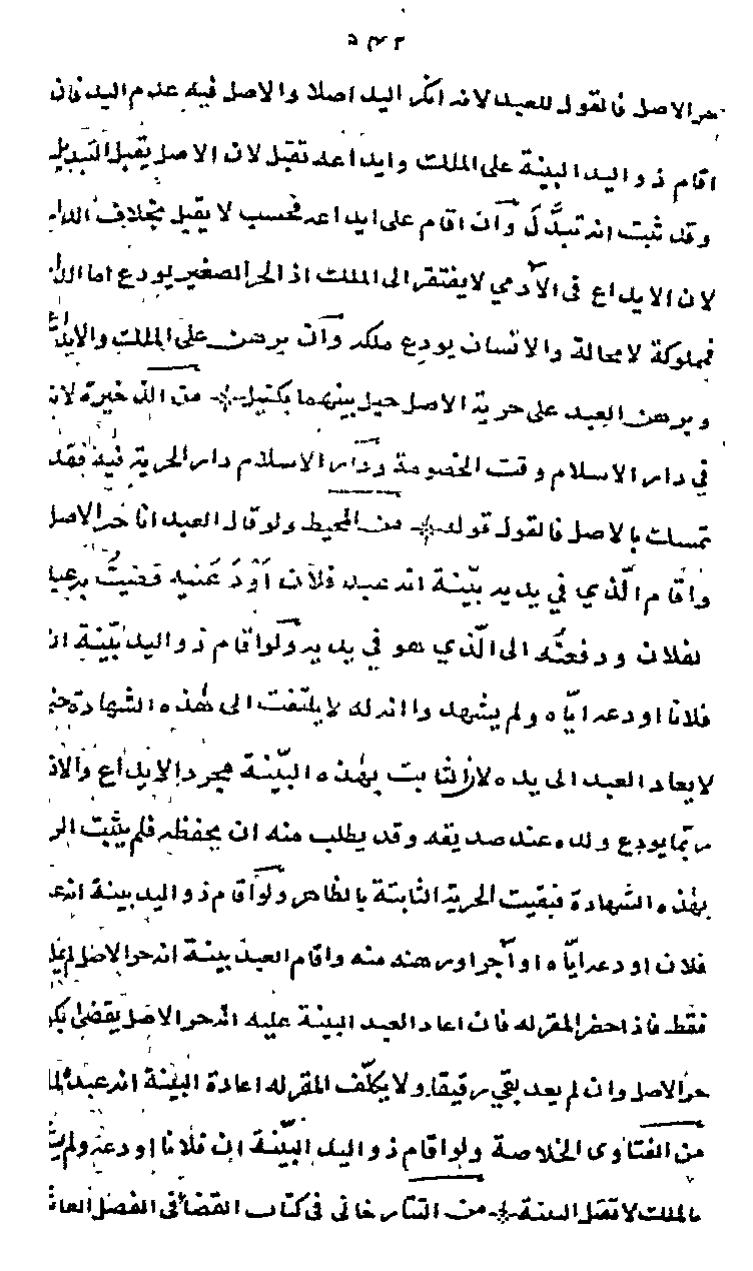 ٥٤٢
حر الاصل فالقول للعبد لانه انكر اليد اصلا والاصل فيه عدم اليد فان
اقام ذو اليد البينة على الملك وايداعه تقبل لان الاصل يقبل التبديل
وقد ثبت انه تبدَّلَ وآن اقام على ايداعه فحسب لا يقبل بخلاف
لان الايداع فى الآدمي لا يفتقر الى الملك اذ الحر الصغير يودع اما
فمملوكة لا محالة والانسان يودع ملكه وآن برهن على الملك والايداع
وبرهن العبد على حرية الاصل حيل بينهما بكفيل من الذخيرة لانه
في دار الاسلام وقت الخصومة ودار الاسلام دار الحرية فيه فقد
تمسك بالاصل فالقول قوله من المحيط ولو قال العبد انا حر الاصل
واقام الّذي في يديه بيّنة انه عبد فلان أَوْدَعَنيه قضيت
لفلان ودفعتُه الى الّذي هو في يديه ولو اقام ذو اليد بيّنة ان
فلانا اودعه ايّاه ولم يشهدوا انه له لا يلتفت الى هٰذه الشهادة
لا يعاد العبد الى يده لان الثابت بهٰذه البيّنة مجرد الايداع والانسان
ربّما يودع ولده عند صديقه وقد يطلب منه ان يحفظه فلم يثبت
بهٰذه الشهادة فبقيت الحرية الثابتة بالظاهر ولو اقام ذو اليد بينة
فلان اودعه ايّاه او آجر او رهنه منه واقام العبد بيّنة انه حر الاصل
فقط فاذا حضر المقر له فان اعاد العبد البينة عليه انه حر الاصل يقضى
حر الاصل وان لم يعد بقي رقيقا ولا يكلّف المقر له اعادة البيّنة انه عبده
من الفتاوى الخلاصة ولو اقام ذو اليد البيّنة ان فلانا اودعه ولم
بالملك لا تقبل البينة من التتارخاني فى كتاب القضا فى الفصل